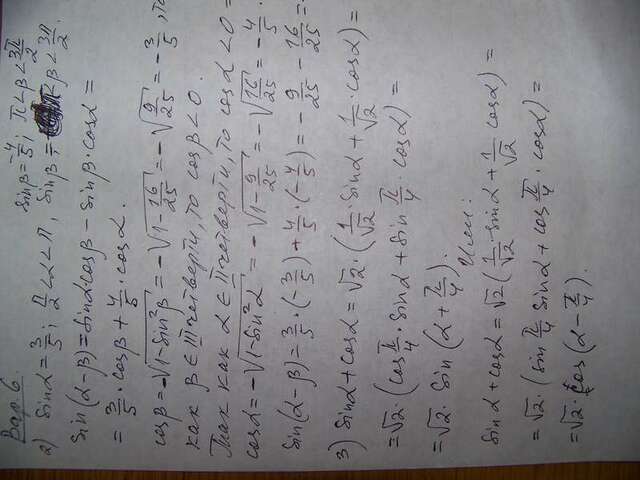 Вар. 6.
2) sinα = 3/5; π/2 < α < π, sinβ = -4/5; π < β < 3π/2
sinβ = π < β < 3π/2.
sin(α-β) = sinα·cosβ - sinβ·cosα =
= 3/5·cosβ + 4/5·cosα.
cosβ = -√(1-sin²β) = -√(1-16/25) = -√(9/25) = -3/5, т.
как β ∈ III четверти, то cosβ < 0.
Так как α ∈ II четверти, то cosα < 0
cosα = -√(1-sin²α) = -√(1-9/25) = -√(16/25) = -4/5.
sin(α-β) = 3/5·(-3/5) + 4/5·(-4/5) = -9/25 - 16/25 =
3) sinα + cosα = √2·(1/√2·sinα + 1/√2·cosα) =
= √2·(cos π/4·sinα + sin π/4·cosα) =
= √2·sin(α + π/4).
Или:
sinα + cosα = √2(1/√2·sinα + 1/√2 cosα) =
= √2·(sin π/4 sinα + cos π/4·cosα) =
= √2·cos(α - π/4).